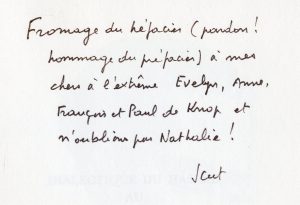 Fromage du préfacier (pardon !
hommage du préfacier) à mes
chers à l'extrême Evelyn, Anne,
François et Paul de Knop et
n'oublions pas Nathalie !